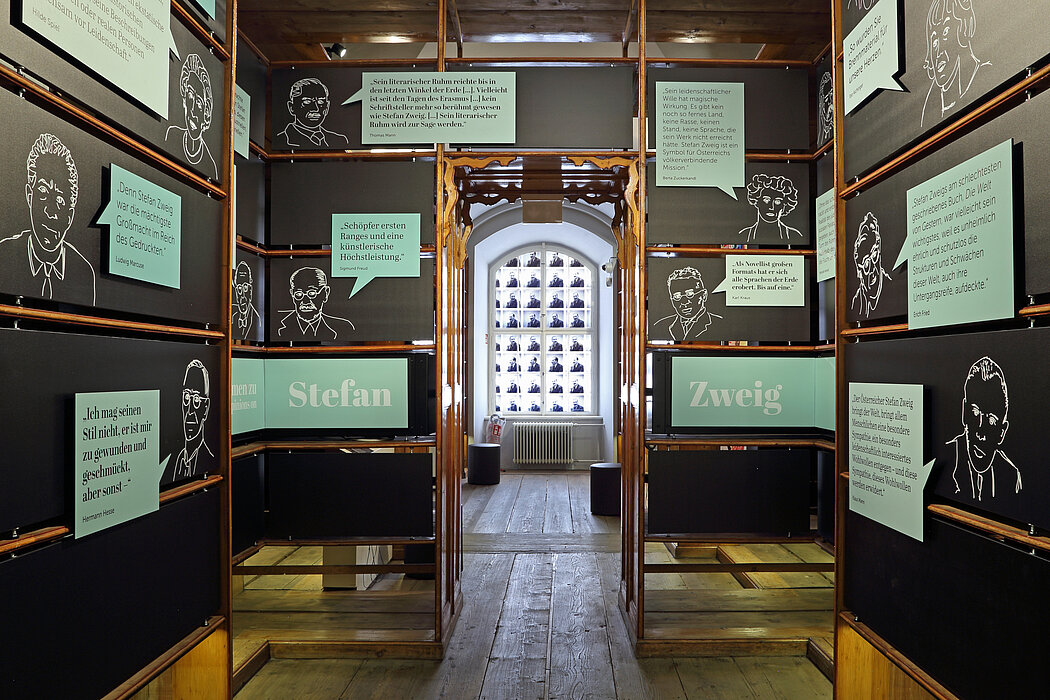 historischen
oder realen Personen
ensam vor ekstatische
en Beschreibungen
von Leidenschaft.“
Hilde Spiel
„Denn Stefan Zweig
war die mächtigste
Großmacht im Reich
des Gedruckten.“
Ludwig Marcuse
„Ich mag seinen
Stil nicht, er ist mir
zu gewunden und
geschmückt,
aber sonst –“
Hermann Hesse
„Sein literarischer Ruhm reichte bis in
den letzten Winkel der Erde [...]. Vielleicht
ist seit den Tagen des Erasmus [...] kein
Schriftsteller mehr so berühmt gewesen wie
Stefan Zweig. [...] Sein literarischer
Ruhm wird zur Sage werden.“
Thomas Mann
„Schöpfer ersten
Ranges und eine
künstlerische
Höchstleistung.“
Sigmund Freud
men zu
pinions on
Stefan
Zweig
„Sein leidenschaftlicher
Wille hat magische
Wirkung. Es gibt kein
noch so fernes Land,
keine Rasse, keinen
Stand, keine Sprache, die
sein Werk nicht erreicht
hätte. Stefan Zweig ist
ein Symbol für Österreichs
völkerverbindende
Mission.“
Berta Zuckerkandl
„Als Novellist großen
Formats hat er sich
alle Sprachen der Erde
erobert. Bis auf eine.“
Karl Kraus
„So wurden Sie
Brennmaterial für
unsere Herzen.“
„Stefan Zweigs am schlechtesten
geschriebenes Buch, Die Welt
von Gestern, war vielleicht sein
wichtigstes, weil es unheimlich
ehrlich und schutzlos die
Strukturen und Schwächen
dieser Welt, auch ihre
Untergangsreife, aufdeckte.“
Erich Fried
„Der Österreicher Stefan Zweig
bringt der Welt, bringt allem
Menschlichen eine besondere
Sympathie, ein besonders
leidenschaftlich interessiertes
Wohlwollen entgegen – und diese
Sympathie, dieses Wohlwollen
werden erwidert.“
Klaus Mann